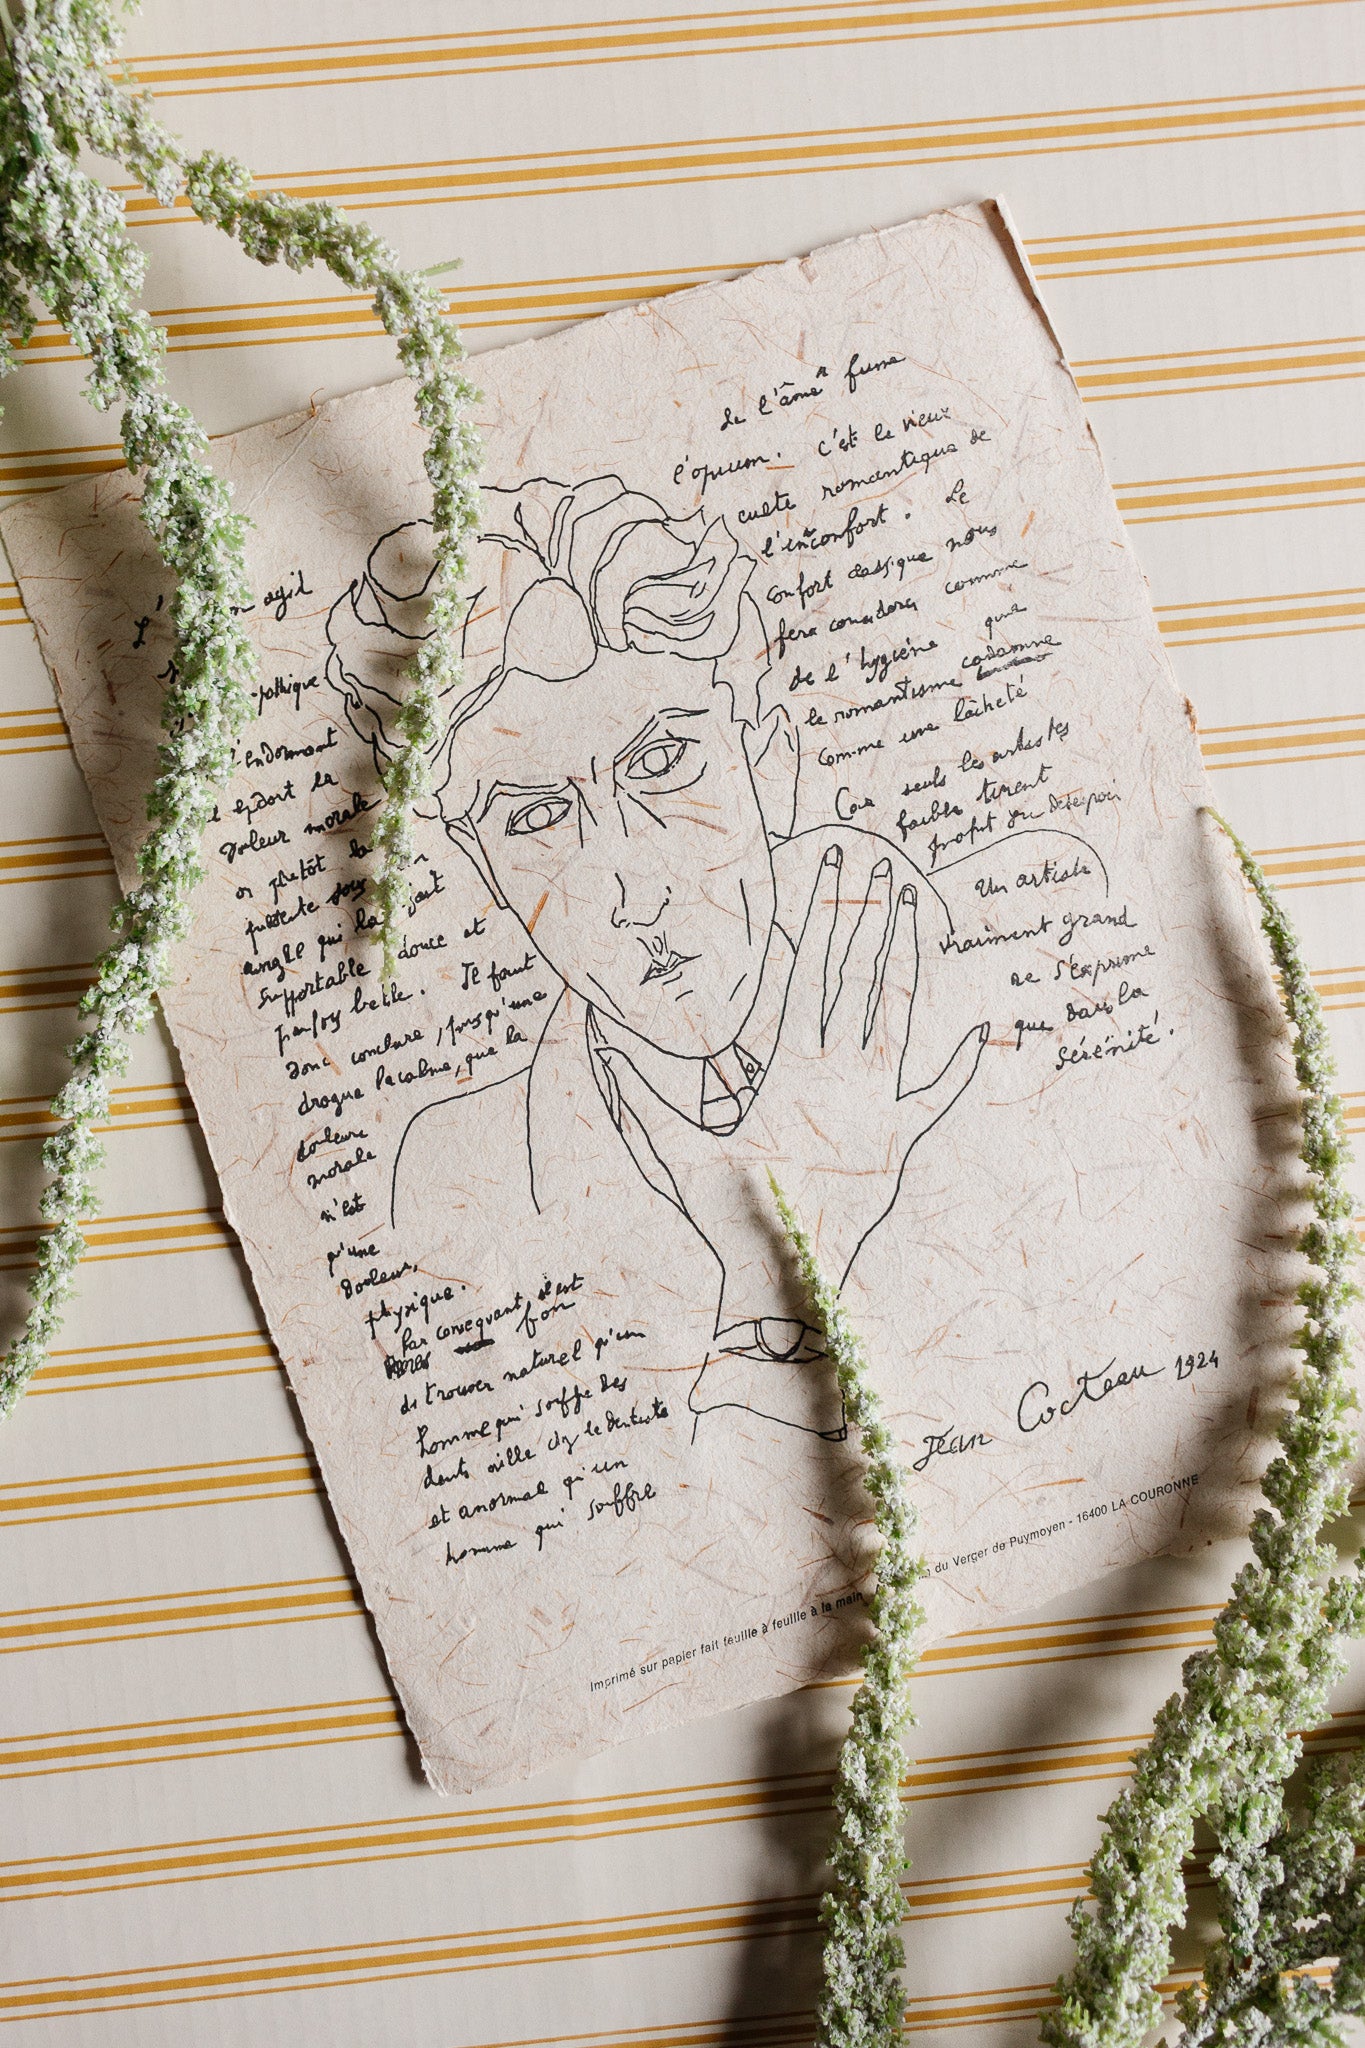 agit
l'endormant
endort la
douleur morale
ou plutôt la
qui la
supportable douce et
parfois belle. Il faut
donc conclure, puisqu'une
drogue la calme, que la
douleur
morale
n'est
qu'une
douleur
physique.
Par consequent il est
fou
de trouver naturel qu'un
homme qui souffre des
dents aille chez le dentiste
et anormal qu'un
homme qui souffre
de l'âme fume
l'opium. C'est le vieux
culte romantique de
l'inconfort. Le
confort classique nous
fera considerer comme
de l'hygiène que
le romantisme condamne
comme une lâcheté
Car seuls les artistes
faibles tirent
profit du desespoir
Un artiste
vraiment grand
ne s'exprime
que dans la
sérénité.
Jean Cocteau 1924
Imprimé sur papier fait feuille à feuille à la main du Verger de Puymoyen - 16400 LA COURONNE